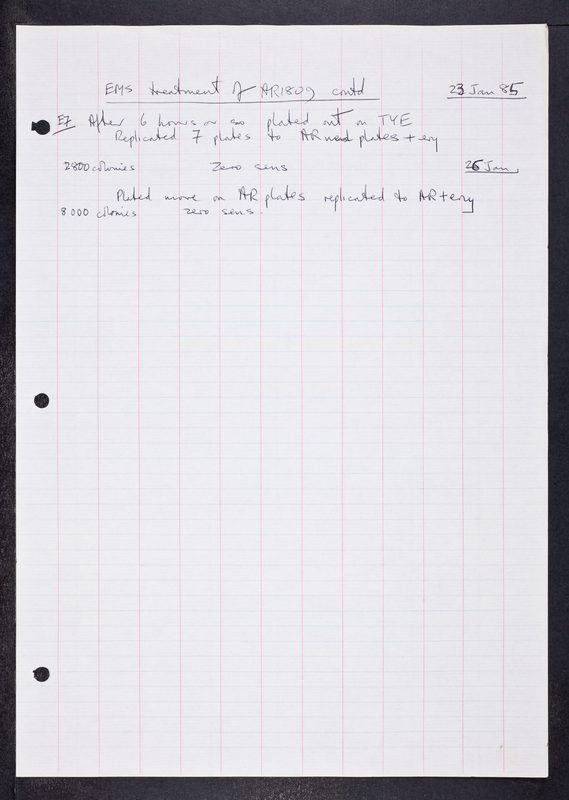 EMS treatment of AR1809 contd 23 Jan 85
E7 After 6 hours or so plated out on TYE
Replicated 7 plates to AR plates + ery
2800 colonies Zero sens 26 Jan
Plated more on AR plates replicated to AR + ery
8000 colonies zero sens.